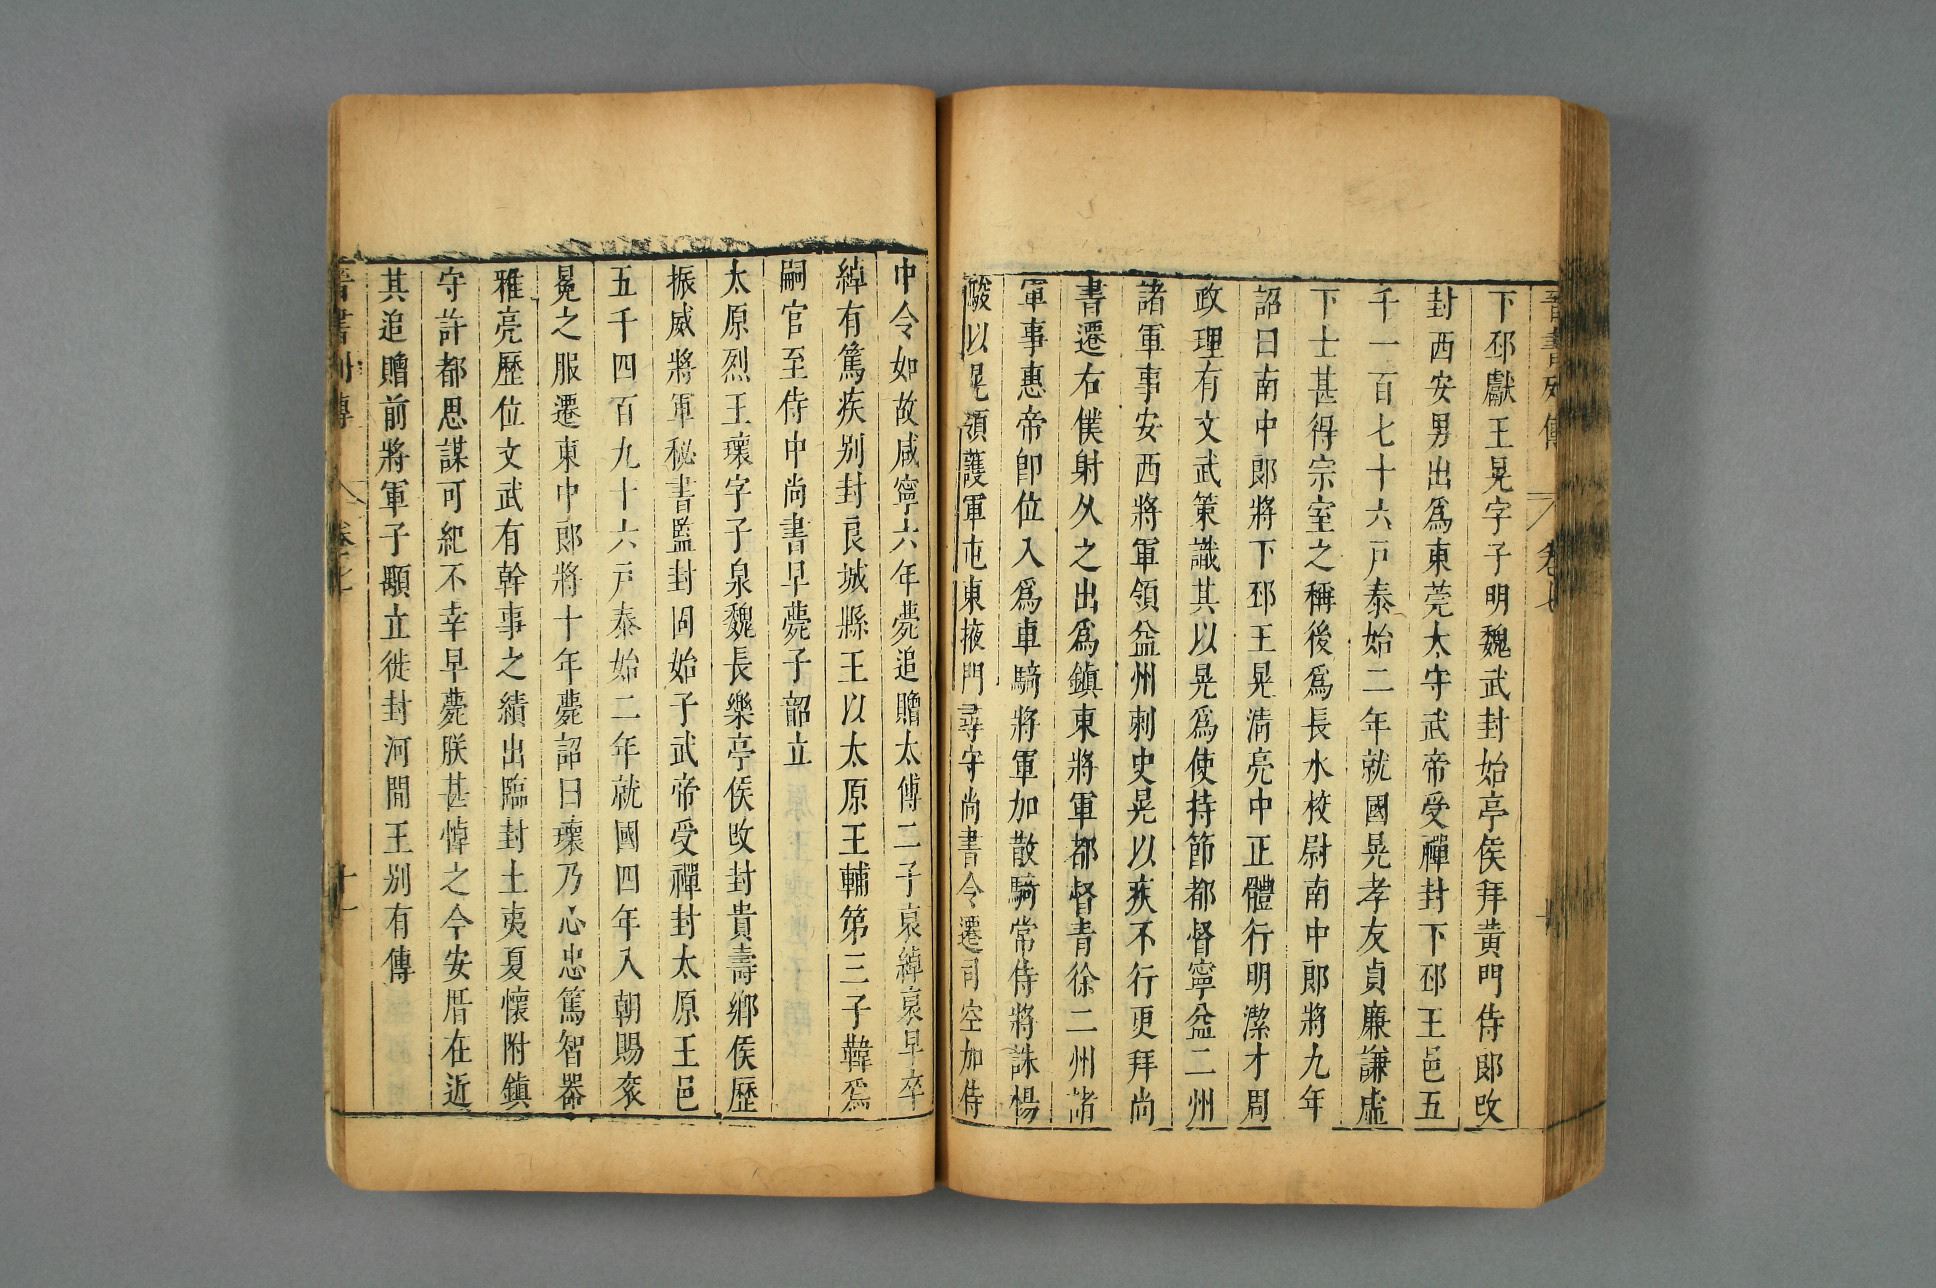 晉書列傳 卷七
下邳獻王晃字子明魏武封始亭侯拜黃門侍郎改
封西安男出爲東莞太守武帝受禪封下邳王邑五
千一百七十六戸泰始二年就國晃孝友貞廉謙虛
下士甚得宗室之稱後爲長水校尉南中郎將九年
詔曰南中郎將下邳王晃清亮中正體行明潔才周
政理有文武策識其以晃爲使持節都督寧益二州
諸軍事安西將軍領益州刺史晃以疾不行更拜尚
書遷右僕射久之出爲鎮東將軍都督青徐二州諸
軍事惠帝卽位入爲車騎將軍加散騎常侍將誅楊
駿以晃領護軍屯東掖門尋守尚書令遷司空加侍
中令如故咸寧六年薨追贈太傅二子裒綽裒早卒
綽有篤疾别封良城縣王以太原王輔第三子韡爲
嗣官至侍中尚書早薨子韶立
太原烈王瓌字子泉魏長樂亭侯改封貴壽鄉侯歷
振威將軍秘書監封固始子武帝受禪封太原王邑
五千四百九十六戸泰始二年就國四年入朝賜衮
冕之服遷東中郎將十年薨詔曰瓌乃心忠篤智器
雅亮歷位文武有幹事之績出臨封土夷夏懷附鎮
守許都思謀可紀不幸早薨朕甚悼之今安厝在近
其追贈前將軍子顒立徙封河間王别有傳
晉書列傳 卷七 十一